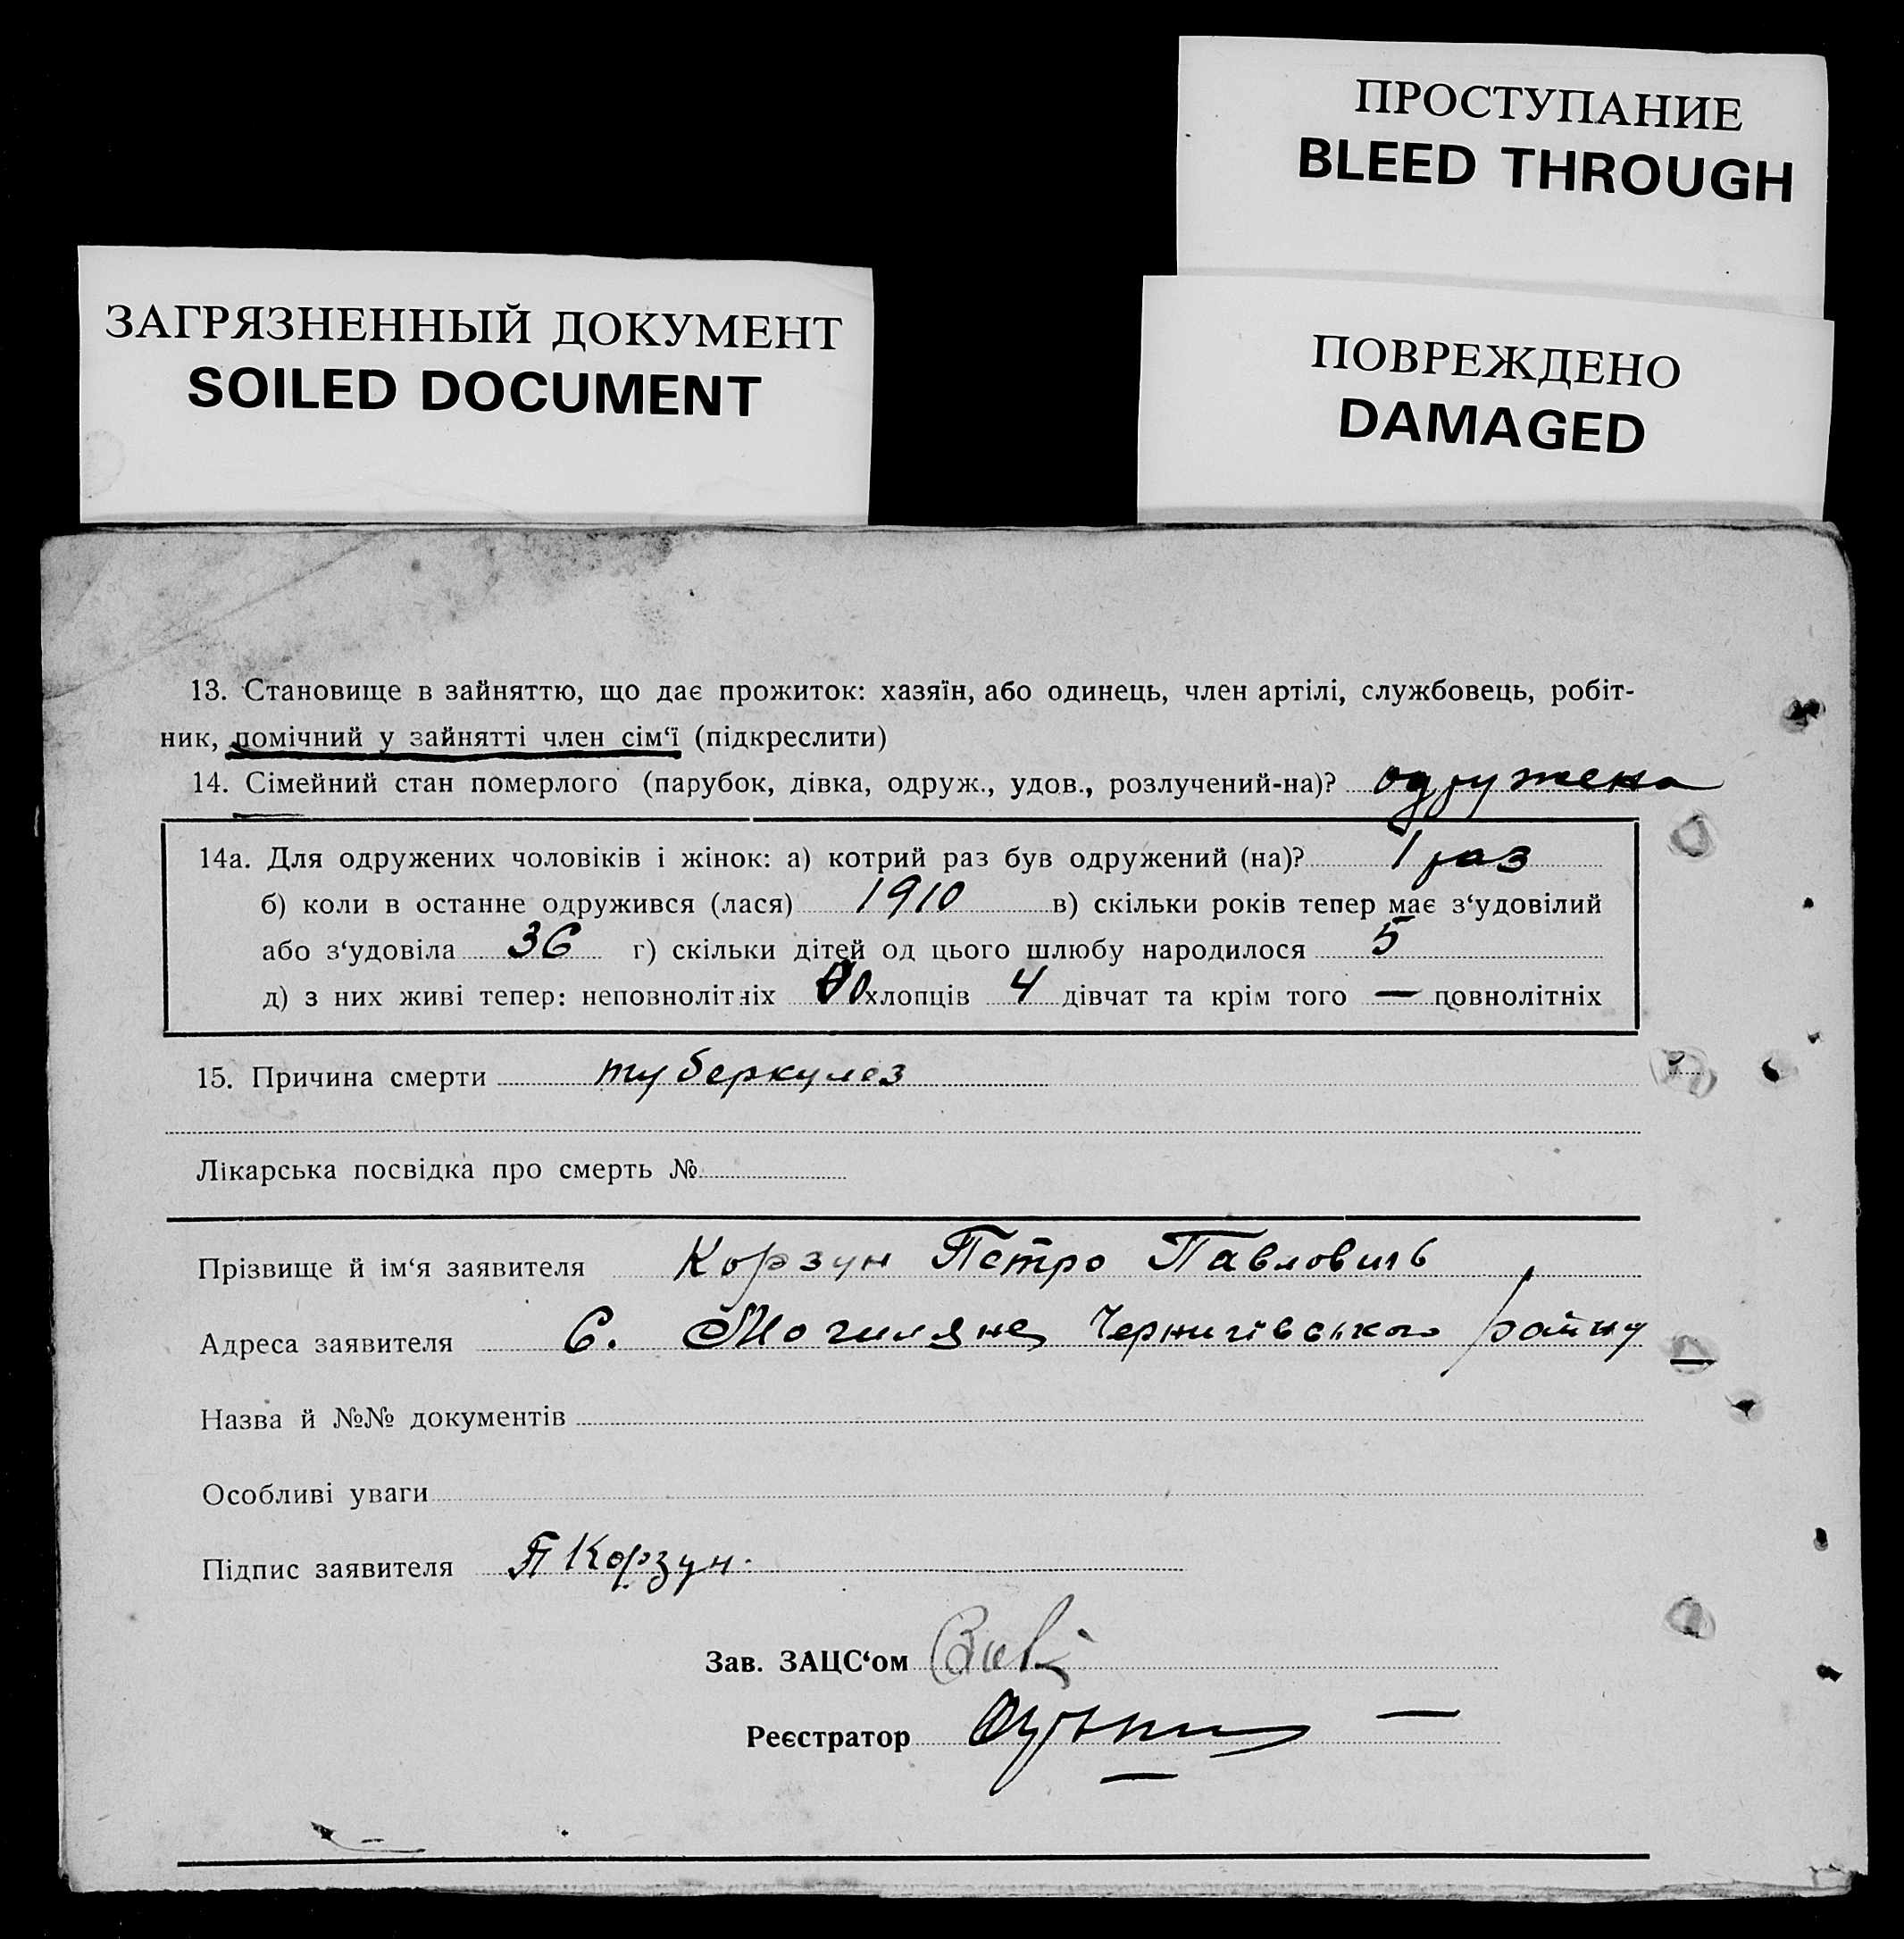 ПРОСТУПАНИЕ
BLEED THROUGH
ЗАГРЯЗНЕННЫЙ ДОКУМЕНТ
SOILED DOCUMENT
ПОВРЕЖДЕНО
DAMAGED
13. Становище в зайняттю, що дає прожиток: хазяїн, або одинець, член артілі, службовець, робіт-
ник, помічний у зайнятті член сім‘ї (підкреслити)
14. Сімейний стан померлого (парубок, дівка, одруж., удов., розлучений-на)? одружена
14а. Для одружених чоловіків і жінок: а) котрий раз був одружений (на)? 1 раз
б) коли в останнє одружився (лася) 1910 в) скільки років тепер має з‘удовілий
або з‘удовіла 36 г) скільки дітей од цього шлюбу народилося 5
д) з них живі тепер: неповнолітніх 0 хлопців 4 дівчат та крім того — повнолітніх
15. Причина смерти туберкулез
Лікарська посвідка про смерть №
Прізвище й ім‘я заявителя Корзун Петро Павлович
Адреса заявителя С. Могиляне Чернигівського району
Назва й №№ документів
Особливі уваги
Підпис заявителя П Корзун.
Зав. ЗАЦС‘ом
Реєстратор